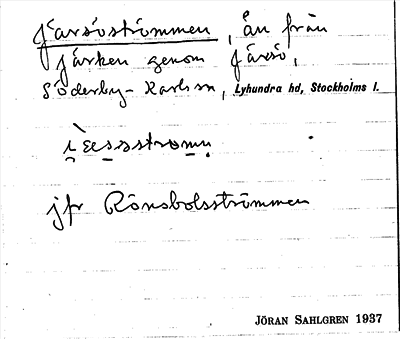 Järsöströmmen, ån från
Järken genom Järsö,
Söderby-Karls sn, Lyhundra hd, Stockholms l.
jfr Rönsbolsströmmen
JÖRAN SAHLGREN 1937